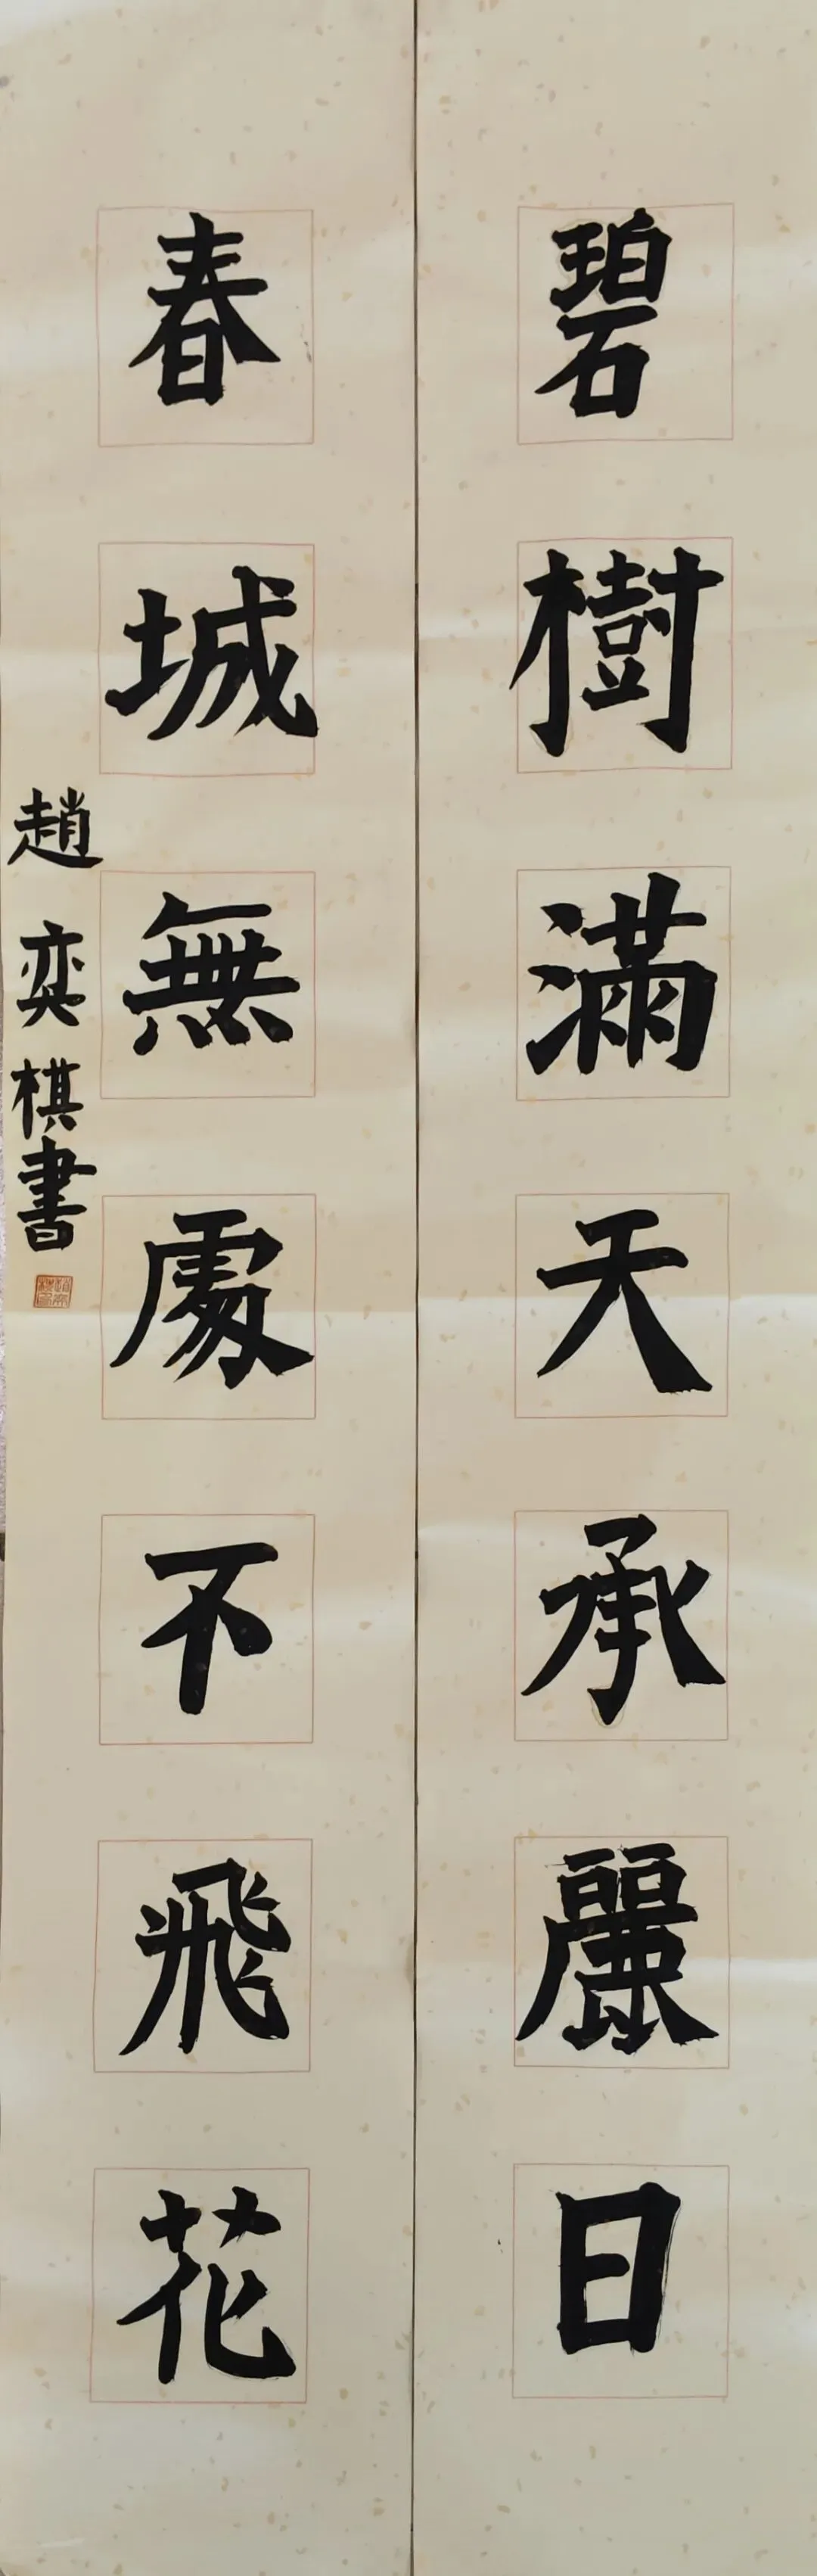 碧樹滿天承麗日
春城無處不飛花
趙奕棋書